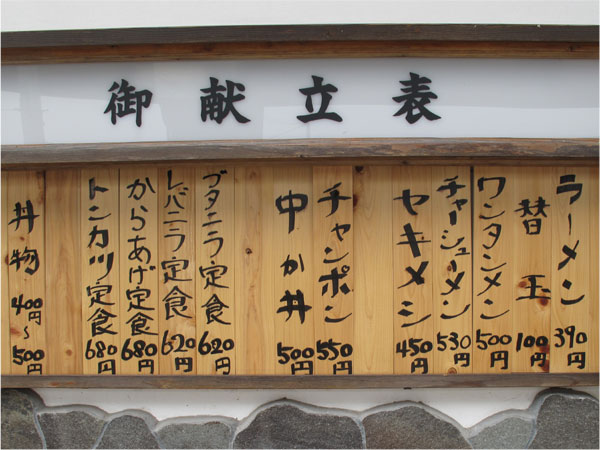 御献立表
ラーメン 390円
替玉 100円
ワンタンメン 500円
チャーシューメン 530円
ヤキメシ 450円
チャンポン 550円
中か丼 500円
ブタニラ定食 620円
レバニラ定食 620円
からあげ定食 680円
トンカツ定食 680円
丼物 400円~500円